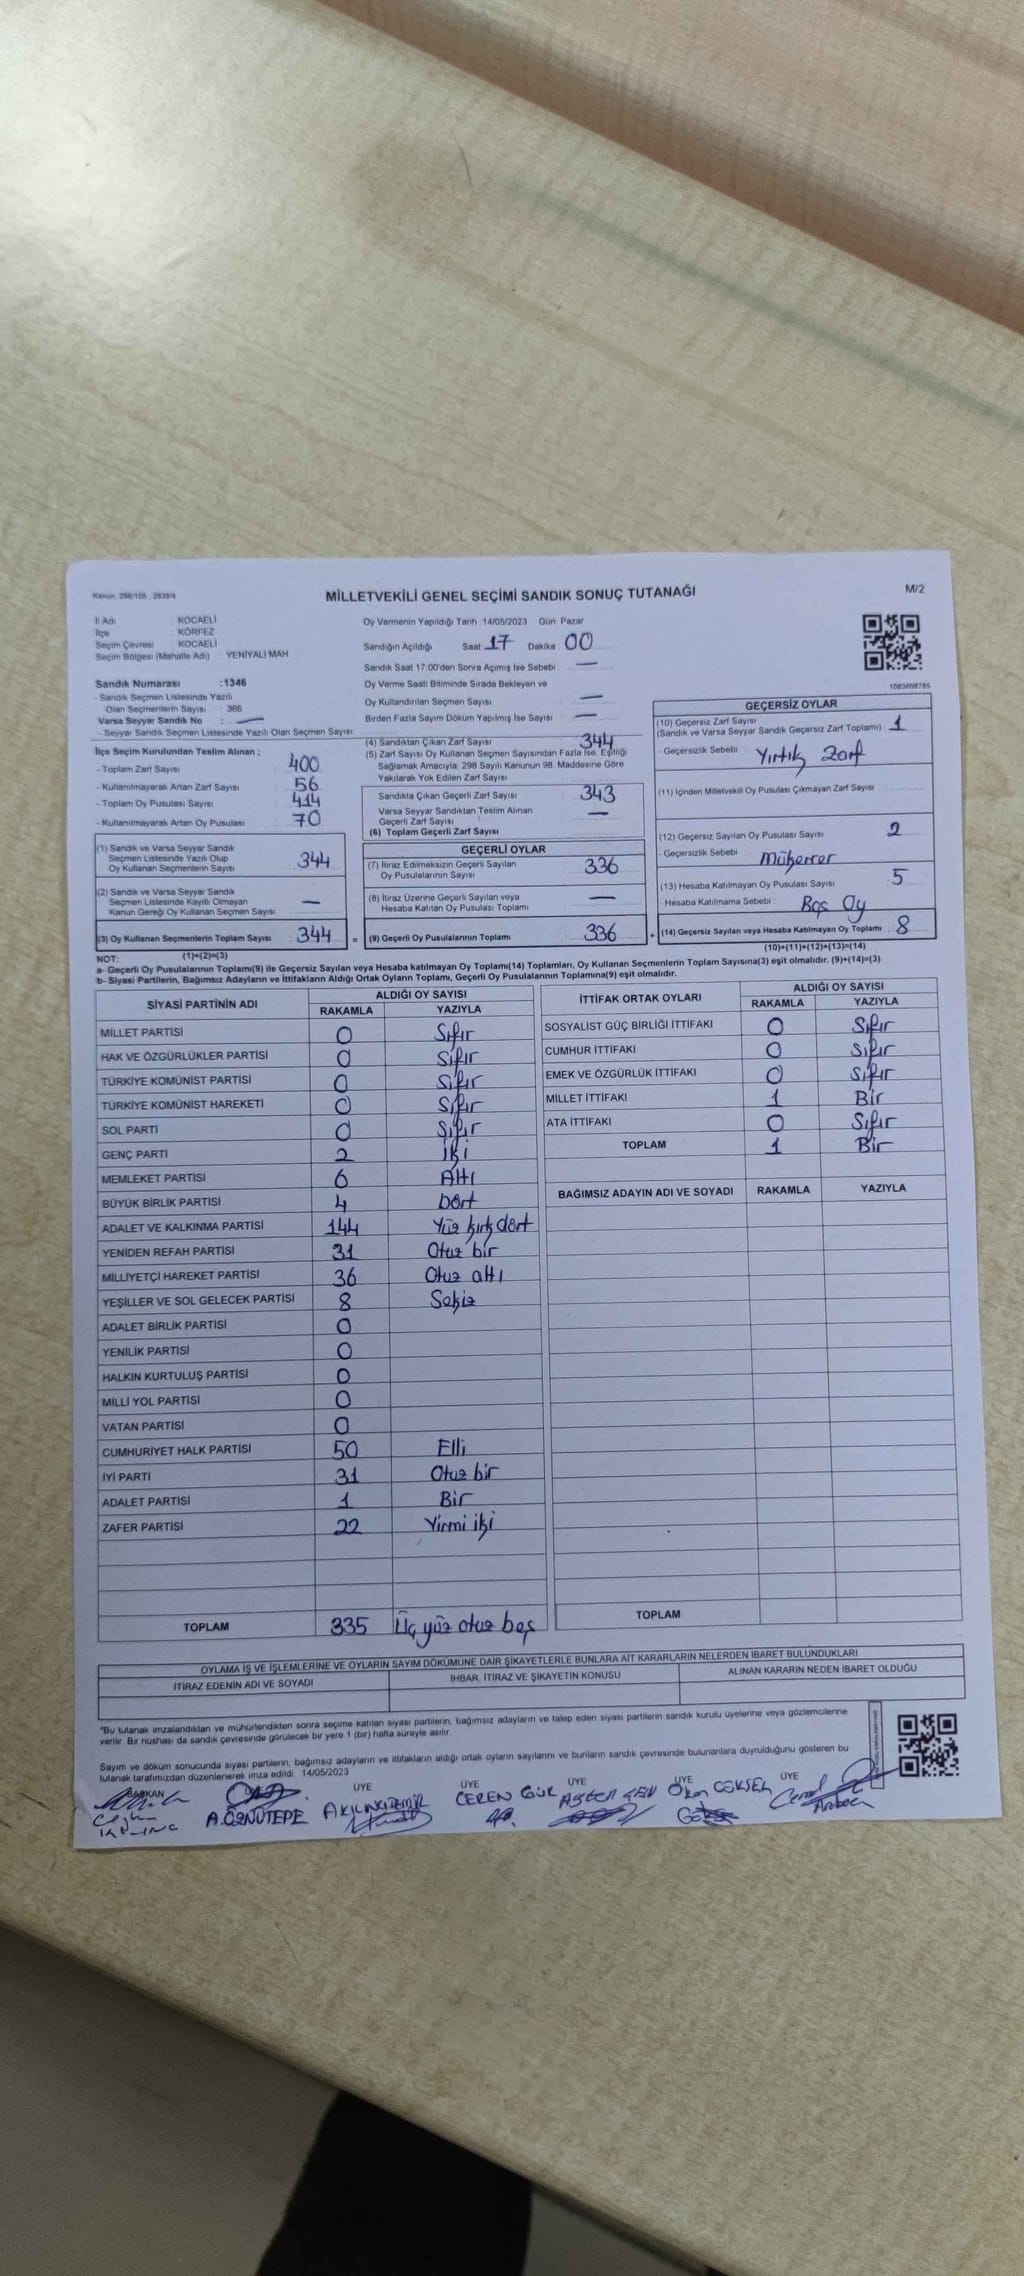 Kanun, 298/105 , 2839/4
MİLLETVEKİLİ GENEL SEÇİMİ SANDIK SONUÇ TUTANAĞI
M/2
İl Adı : KOCAELİ
İlçe : KÖRFEZ
Seçim Çevresi : KOCAELİ
Seçim Bölgesi (Mahalle Adı) : YENİYALI MAH
Sandık Numarası :1346
- Sandık Seçmen Listesinde Yazılı
Olan Seçmenlerin Sayısı : 366
Varsa Seyyar Sandık No : —
- Seyyar Sandık Seçmen Listesinde Yazılı Olan Seçmen Sayısı
Oy Vermenin Yapıldığı Tarih :14/05/2023 Gün Pazar
Sandığın Açıldığı Saat 17 Dakika 00
Sandık Saat 17:00'den Sonra Açımış İse Sebebi : —
Oy Verme Saati Bitiminde Sırada Bekleyen ve
Oy Kullandırılan Seçmen Sayısı : —
Birden Fazla Sayım Döküm Yapılmış İse Sayısı : —
1083608785
İlçe Seçim Kurulundan Teslim Alınan ;
- Toplam Zarf Sayısı : 400
- Kullanılmayarak Artan Zarf Sayısı : 56
- Toplam Oy Pusulası Sayısı : 414
- Kullanılmayarak Artan Oy Pusulası : 70
(1) Sandık ve Varsa Seyyar Sandık
Seçmen Listesinde Yazılı Olup
Oy Kullanan Seçmenlerin Sayısı : 344
(2) Sandık ve Varsa Seyyar Sandık
Seçmen Listesinde Kayıtlı Olmayan
Kanun Gereği Oy Kullanan Seçmen Sayısı : —
(3) Oy Kullanan Seçmenlerin Toplam Sayısı : 344 =
(1)+(2)=(3)
(4) Sandıktan Çıkan Zarf Sayısı : 344
(5) Zarf Sayısı Oy Kullanan Seçmen Sayısından Fazla İse, Eşitliği
Sağlamak Amacıyla; 298 Sayılı Kanunun 98. Maddesine Göre
Yakılarak Yok Edilen Zarf Sayısı :
Sandıkta Çıkan Geçerli Zarf Sayısı : 343
Varsa Seyyar Sandıktan Teslim Alınan
Geçerli Zarf Sayısı : —
(6) Toplam Geçerli Zarf Sayısı :
GEÇERLİ OYLAR
(7) İtiraz Edilmeksizin Geçerli Sayılan
Oy Pusulalarının Sayısı : 336
(8) İtiraz Üzerine Geçerli Sayılan veya
Hesaba Katılan Oy Pusulası Toplamı : —
(9) Geçerli Oy Pusulalarının Toplamı : 336 +
GEÇERSİZ OYLAR
(10) Geçersiz Zarf Sayısı
(Sandık ve Varsa Seyyar Sandık Geçersiz Zarf Toplamı) : 1
- Geçersizlik Sebebi : Yırtık Zarf
(11) İçinden Milletvekili Oy Pusulası Çıkmayan Zarf Sayısı :
(12) Geçersiz Sayılan Oy Pusulası Sayısı : 2
- Geçersizlik Sebebi : Mükerrer
(13) Hesaba Katılmayan Oy Pusulası Sayısı : 5
- Hesaba Katılmama Sebebi : Boş Oy
(14) Geçersiz Sayılan veya Hesaba Katılmayan Oy Toplamı : 8
(10)+(11)+(12)+(13)=(14)
NOT:
a- Geçerli Oy Pusulalarının Toplamı(9) ile Geçersiz Sayılan veya Hesaba katılmayan Oy Toplamı(14) Toplamları, Oy Kullanan Seçmenlerin Toplam Sayısına(3) eşit olmalıdır. (9)+(14)=(3)
b- Siyasi Partilerin, Bağımsız Adayların ve İttifakların Aldığı Ortak Oyların Toplamı, Geçerli Oy Pusulalarının Toplamına(9) eşit olmalıdır.
SİYASİ PARTİNİN ADI ALDIĞI OY SAYISI
RAKAMLA YAZIYLA
MİLLET PARTİSİ 0 Sıfır
HAK VE ÖZGÜRLÜKLER PARTİSİ 0 Sıfır
TÜRKİYE KOMÜNİST PARTİSİ 0 Sıfır
TÜRKİYE KOMÜNİST HAREKETİ 0 Sıfır
SOL PARTİ 0 Sıfır
GENÇ PARTİ 2 İki
MEMLEKET PARTİSİ 6 Altı
BÜYÜK BİRLİK PARTİSİ 4 Dört
ADALET VE KALKINMA PARTİSİ 144 Yüz kırk dört
YENİDEN REFAH PARTİSİ 31 Otuz bir
MİLLİYETÇİ HAREKET PARTİSİ 36 Otuz altı
YEŞİLLER VE SOL GELECEK PARTİSİ 8 Sekiz
ADALET BİRLİK PARTİSİ 0
YENİLİK PARTİSİ 0
HALKIN KURTULUŞ PARTİSİ 0
MİLLİ YOL PARTİSİ 0
VATAN PARTİSİ 0
CUMHURİYET HALK PARTİSİ 50 Elli
İYİ PARTİ 31 Otuz bir
ADALET PARTİSİ 1 Bir
ZAFER PARTİSİ 22 Yirmi iki
TOPLAM 335 Üç yüz otuz beş
İTTİFAK ORTAK OYLARI ALDIĞI OY SAYISI
RAKAMLA YAZIYLA
SOSYALİST GÜÇ BİRLİĞİ İTTİFAKI 0 Sıfır
CUMHUR İTTİFAKI 0 Sıfır
EMEK VE ÖZGÜRLÜK İTTİFAKI 0 Sıfır
MİLLET İTTİFAKI 1 Bir
ATA İTTİFAKI 0 Sıfır
TOPLAM 1 Bir
BAĞIMSIZ ADAYIN ADI VE SOYADI RAKAMLA YAZIYLA
TOPLAM
OYLAMA İŞ VE İŞLEMLERİNE VE OYLARIN SAYIM DÖKÜMÜNE DAİR ŞİKAYETLERLE BUNLARA AİT KARARLARIN NELERDEN İBARET BULUNDUKLARI
İTİRAZ EDENİN ADI VE SOYADI İHBAR, İTİRAZ VE ŞİKAYETİN KONUSU ALINAN KARARIN NEDEN İBARET OLDUĞU
*Bu tutanak imzalandıktan ve mühürlendikten sonra seçime katılan siyasi partilerin, bağımsız adayların ve talep eden siyasi partilerin sandık kurulu üyelerine veya gözlemcilerine
verilir. Bir nüshası da sandık çevresinde görülecek bir yere 1 (bir) hafta süreyle asılır.
Sayım ve döküm sonucunda siyasi partilerin, bağımsız adayların ve ittifakların aldığı ortak oyların sayılarını ve bunların sandık çevresinde bulunanlara duyrulduğunu gösteren bu
tutanak tarafımızdan düzenlenerek imza edildi. 14/05/2023
BAŞKAN ÜYE ÜYE ÜYE ÜYE ÜYE
A.ÖZNUTEPE A.KILINÇDEMİR CEREN GÜR AŞKER ŞEN Okan GÖKSEL